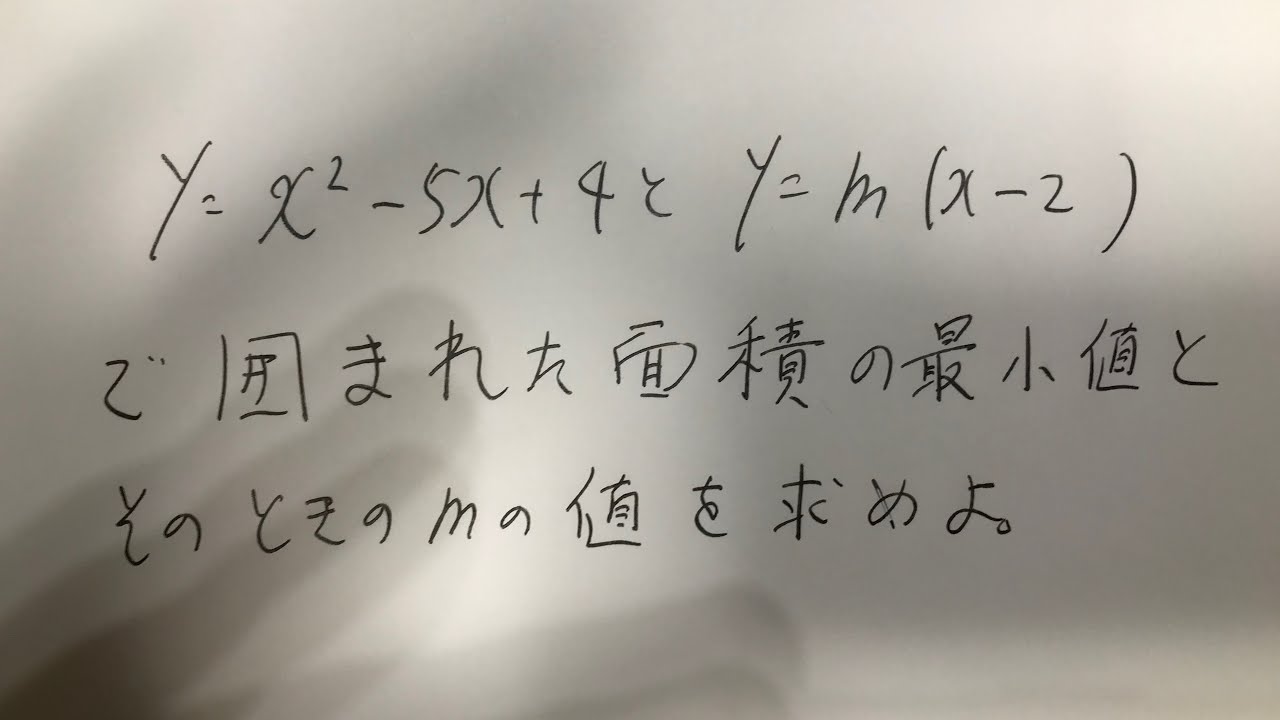 y=x²-5x+4と y=m(x-2)
で囲まれた面積の最小値と
そのときのmの値を求めよ。